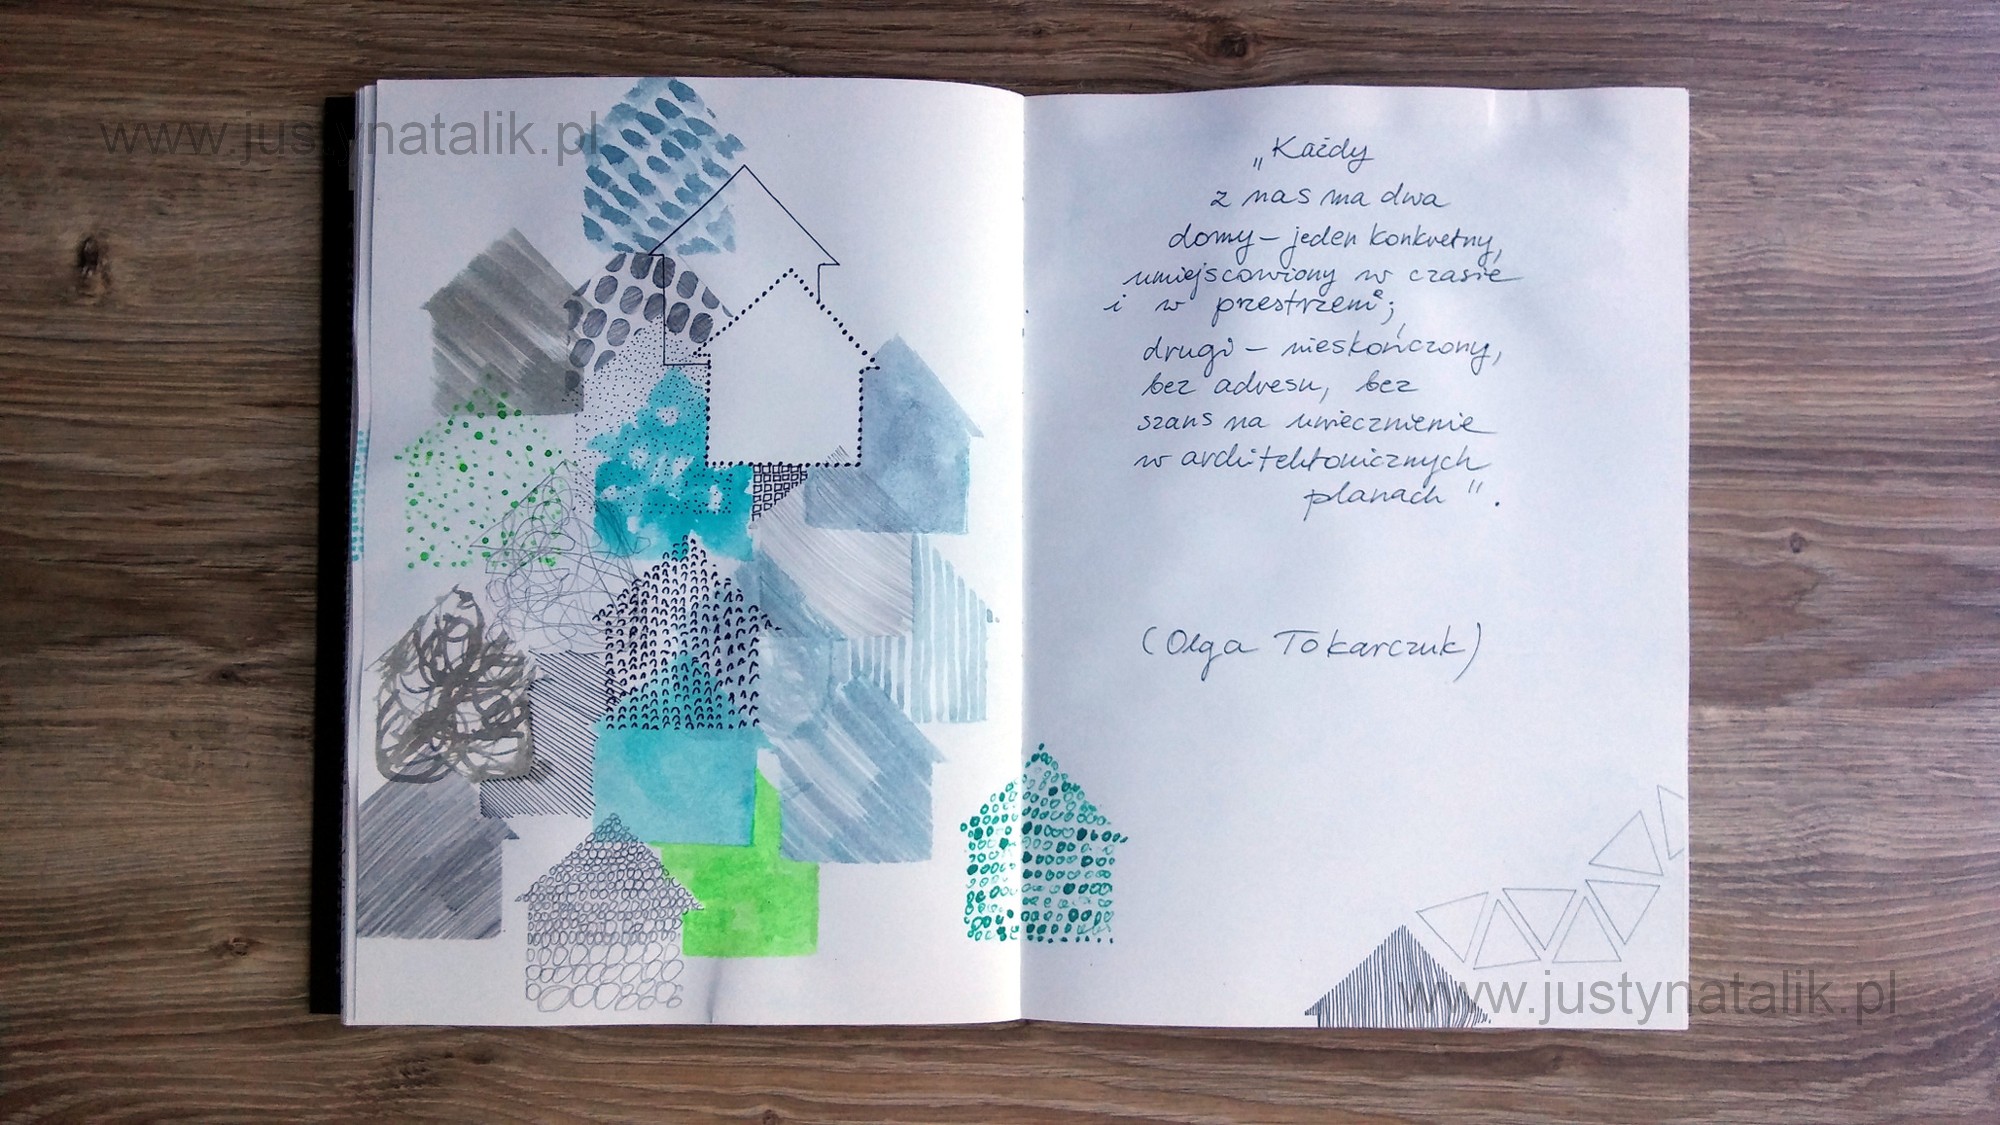 www.justynatalik.pl
„Każdy
z nas ma dwa
domy – jeden konkretny,
umiejscowiony w czasie
i w przestrzeni;
drugi – nieskończony,
bez adresu, bez
szans na uwiecznienie
w architektonicznych
planach".
(Olga Tokarczuk)
www.justynatalik.pl